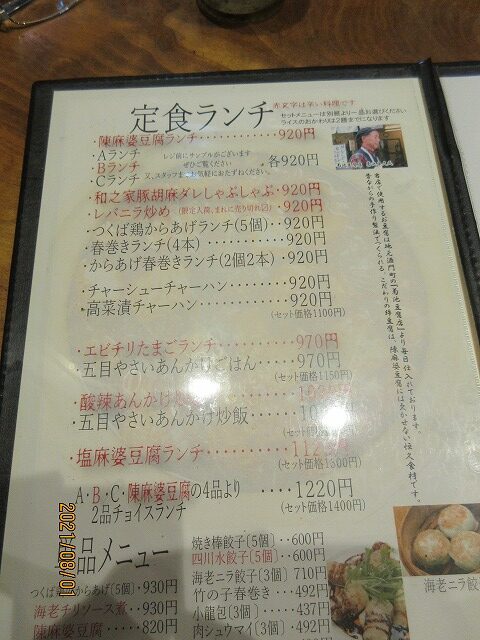 定食ランチ
赤文字は辛い料理です
セットメニューは別紙より一品お選びください
ライスのおかわりは2膳までになります
・陳麻婆豆腐ランチ・・・・・・・・・・・920円
・Aランチ
・Bランチ
・Cランチ
レジ前にサンプルがございます
ぜひご覧ください
又、スタッフまでお気軽におたずねください。
各920円
・和之家豚胡麻ダレしゃぶしゃぶ・920円
・レバニラ炒め(限定入荷、まれに売り切れ有)・・920円
・つくば鶏からあげランチ(5個)・・920円
・春巻きランチ(4本)・・・・・・・・・920円
・からあげ春巻きランチ(2個2本)・920円
・チャーシューチャーハン・・・・・920円
・高菜漬チャーハン・・・・・・・・・920円
(セット価格1100円)
・エビチリたまごランチ・・・・・・970円
・五目やさいあんかけごはん・・・・970円
(セット価格1150円)
・酸辣あんかけ
・五目やさいあんかけ炒飯
・塩麻婆豆腐ランチ・・・・・・・112
(セット価格1300円)
A・B・C・陳麻婆豆腐の4品より
2品チョイスランチ
・・・・1220円
(セット価格1400円)
品メニュー
つくば鶏からあげ(5個)・・930円
海老チリソース煮・・930円
陳麻婆豆腐・・・・820円
焼き棒餃子〔5個〕・・600円
四川水餃子〔5個〕・・600円
海老ニラ餃子〔3個〕 710円
竹の子春巻き・・・492円
小龍包〔3個〕・・・・437円
肉シュウマイ〔3個〕・・492
海老ニラ餃
2021/08/01